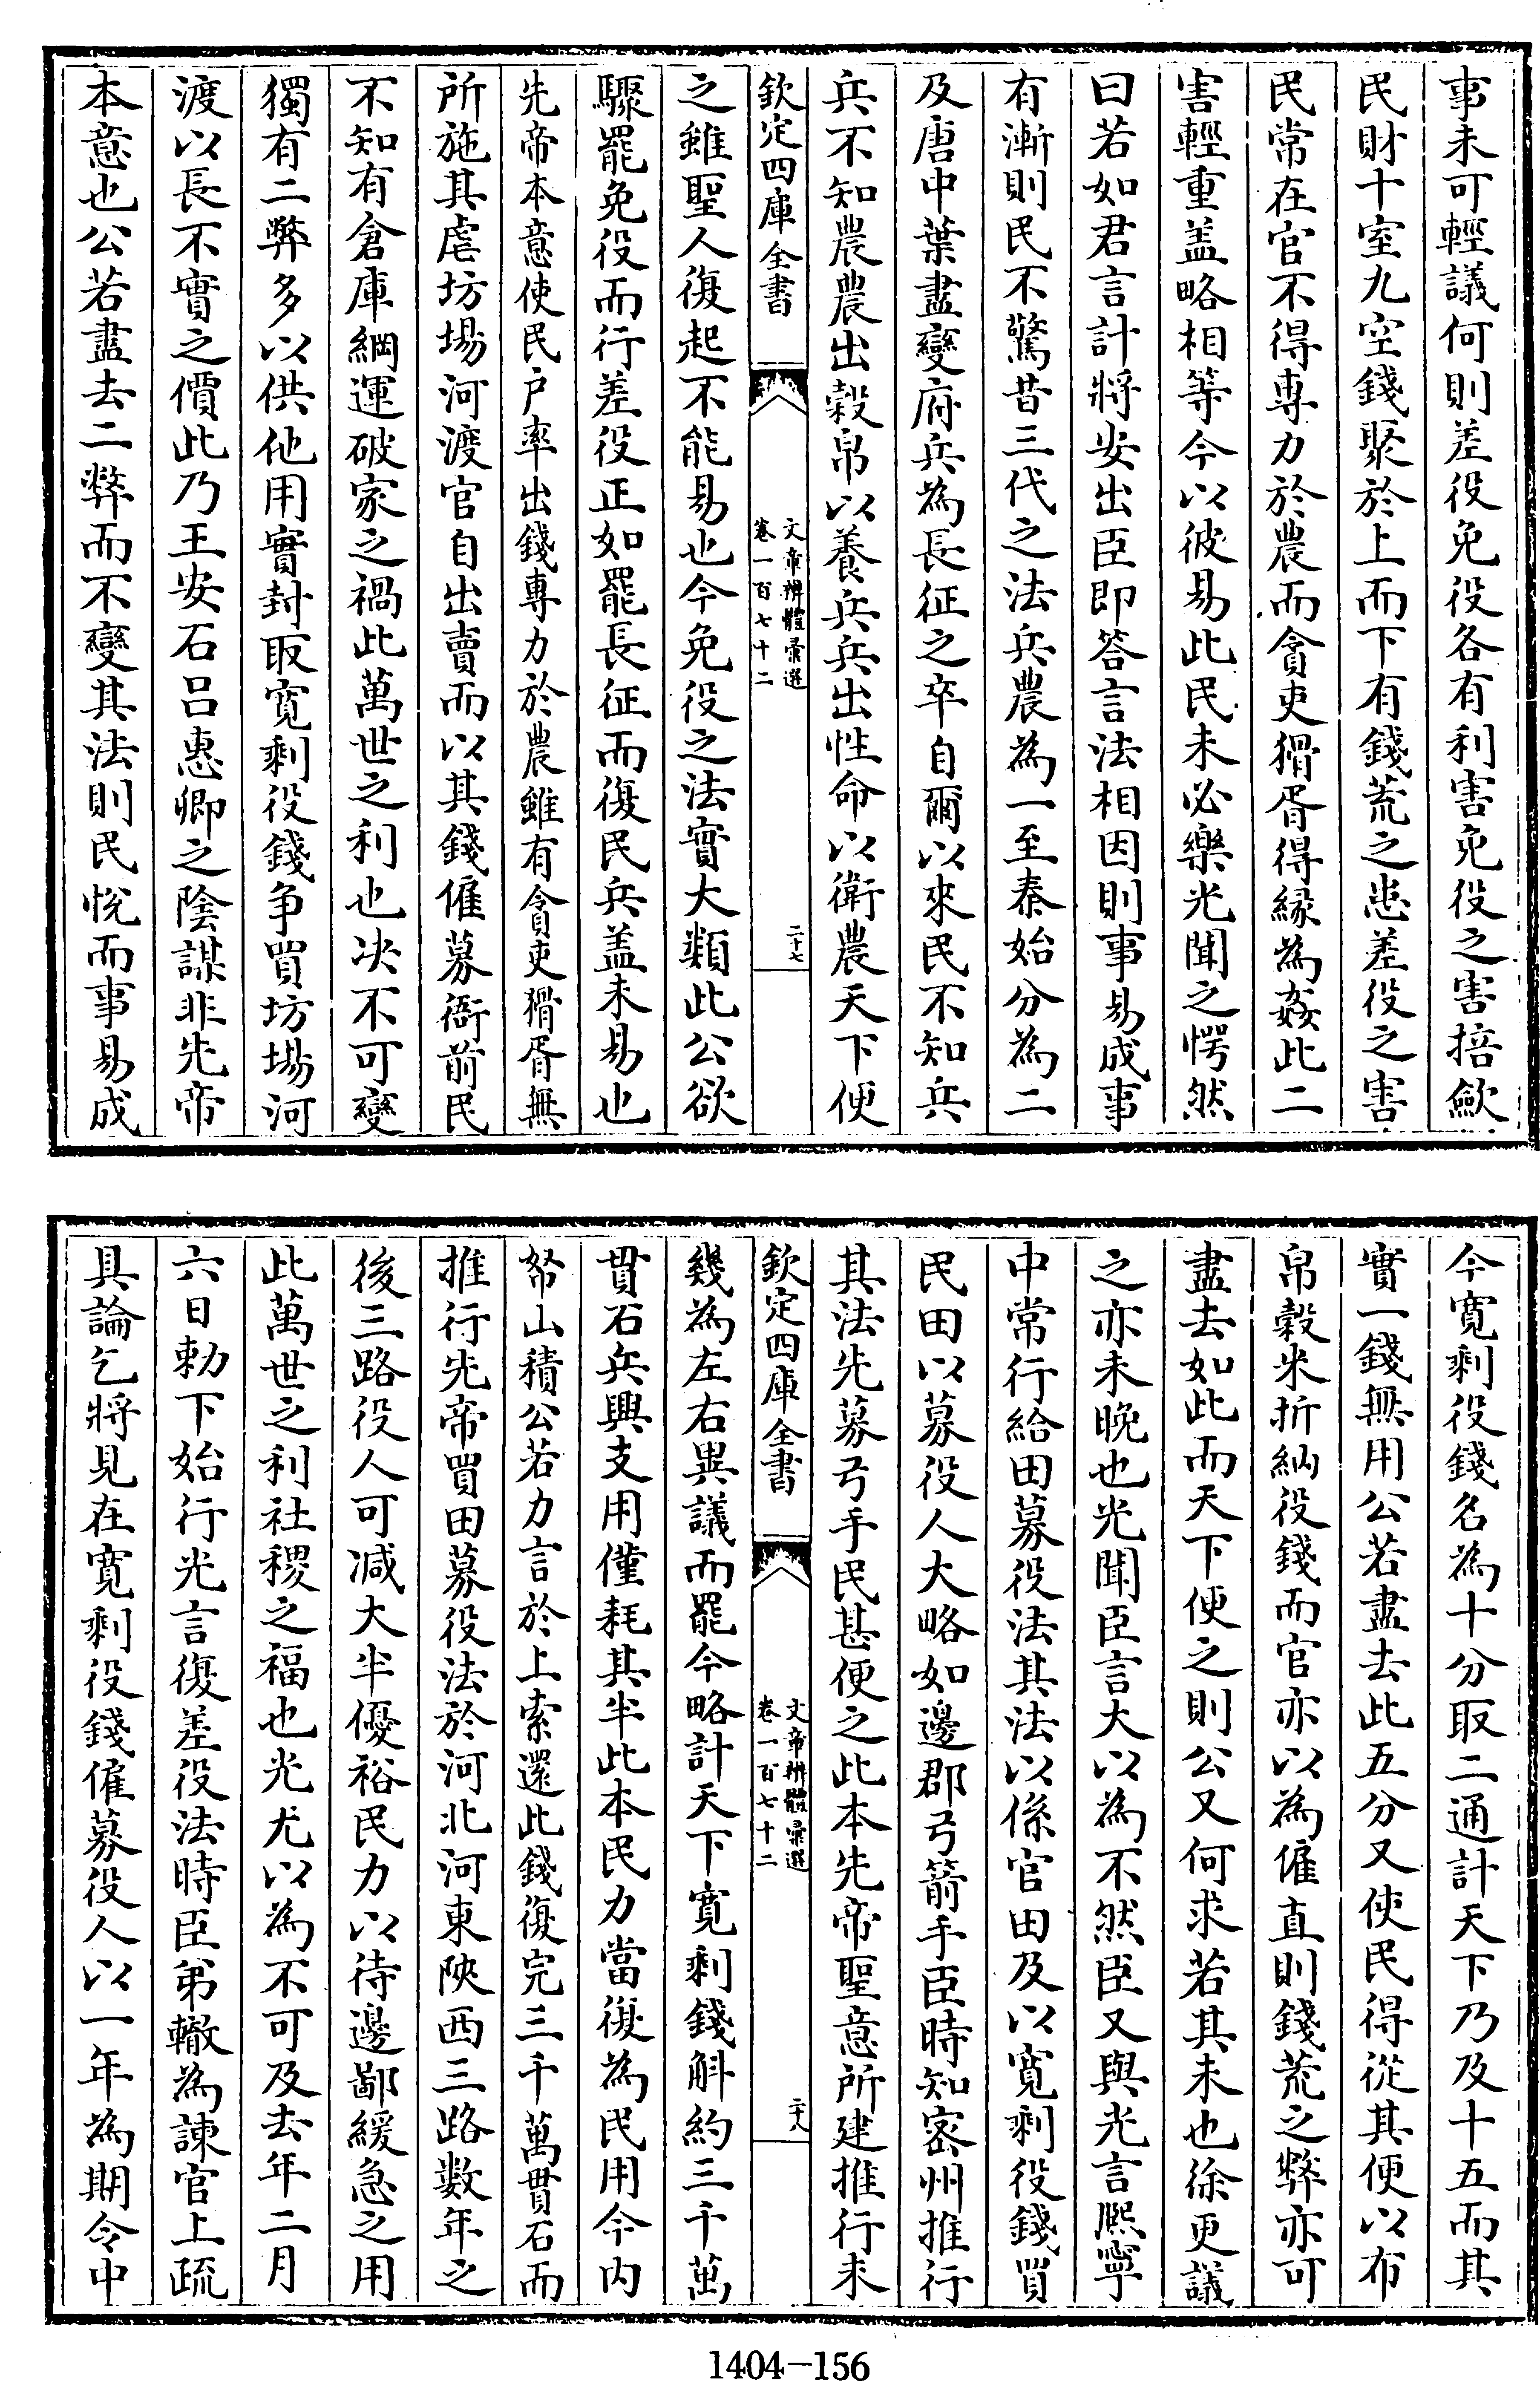 事未可輕議何則差役免役各有利害免役之害掊斂
民財十室九空錢聚於上而下有錢荒之患差役之害
民常在官不得專力於農而貪吏猾胥得緣為姦此二
害輕重盖略相等今以彼易此民未必樂光聞之愕然
曰若如君言計將安出臣即答言法相因則事易成事
有漸則民不驚昔三代之法兵農為一至秦始分為二
及唐中葉盡變府兵為長征之卒自爾以來民不知兵
兵不知農農出穀帛以養兵兵出性命以衛農天下便
欽定四庫全書
文章辨體彚選
卷一百七十二
二十七
之雖聖人復起不能易也今免役之法實大類此公欲
驟罷免役而行差役正如罷長征而復民兵盖未易也
先帝本意使民户率出錢專力於農雖有貪吏猾胥無
所施其虐坊場河渡官自出賣而以其錢僱募衙前民
不知有倉庫綱運破家之禍此萬世之利也决不可變
獨有二弊多以供他用實封取寛剩役錢争買坊場河
渡以長不實之價此乃王安石吕惠卿之陰謀非先帝
本意也公若盡去二弊而不變其法則民悅而事易成
今寛剩役錢名為十分取二通計天下乃及十五而其
實一錢無用公若盡去此五分又使民得從其便以布
帛穀米折納役錢而官亦以為僱直則錢荒之弊亦可
盡去如此而天下便之則公又何求若其未也徐更議
之亦未晚也光聞臣言大以為不然臣又與光言熈寧
中常行給田募役法其法以係官田及以寛剩役錢買
民田以募役人大略如邊郡弓箭手臣時知密州推行
其法先募弓手民甚便之此本先帝聖意所建推行未
欽定四庫全書
文章辨體彚選
卷一百七十二
二十八
幾為左右異議而罷今略計天下寛剩錢斛約三千萬
貫石兵興支用僅耗其半此本民力當復為民用今内
帑山積公若力言於上索還此錢復完三千萬貫石而
推行先帝買田募役法於河北河東陜西三路數年之
後三路役人可减大半優裕民力以待邊鄙緩急之用
此萬世之利社稷之福也光尤以為不可及去年二月
六日勅下始行光言復差役法時臣弟轍為諫官上疏
具論乞將見在寛剩役錢僱募役人以一年為期令中
1404-156